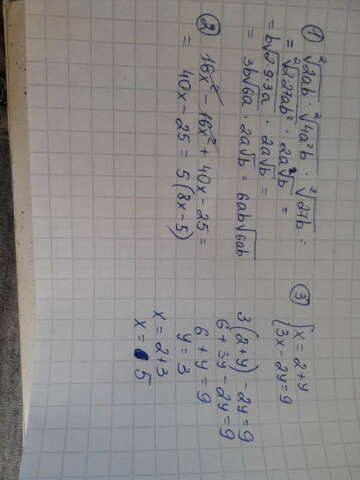 ① ²√2ab · ²√4a²b · ²√27b =
= ²√2·27ab² · 2a²√b =
= b√2·9·3a · 2a√b =
= 3b√6a · 2a√b = 6ab√6ab
② 16x² - 16x² + 40x - 25 =
= 40x - 25 = 5(8x-5)
③ { x = 2+y
{ 3x - 2y = 9
3(2+y) - 2y = 9
6 + 3y - 2y = 9
6 + y = 9
y = 3
x = 2+3
x = 5